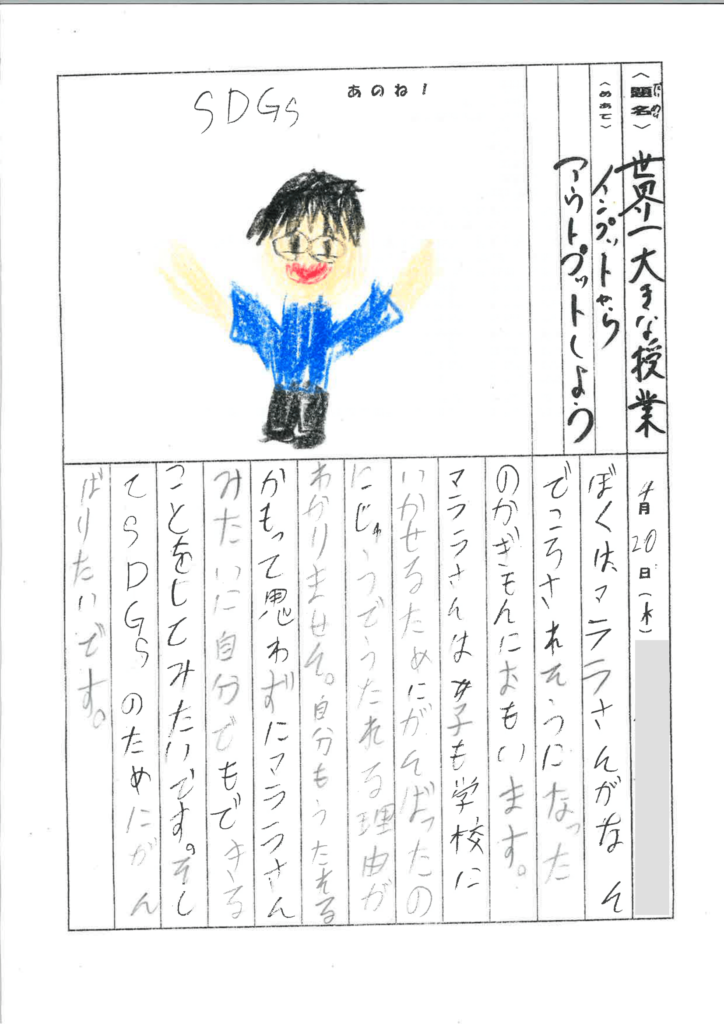 あのね!
SDGs
〈題名〉
だいめい
世界一大きな授業
〈めあて〉
インプットから
アウトプットしよう
4月20日(木)
ぼくは、マララさんがなん
でころされそうになった
のかぎもんにおもいます。
マララさんは女子も学校に
いかせるためにがんばったの
にじゅうでうたれる理由が
わかりません。自分もうたれる
かもって思わずにマララさん
みたいに自分でもできる
ことをしてみたいです。そし
てSDGsのためにがん
ばりたいです。